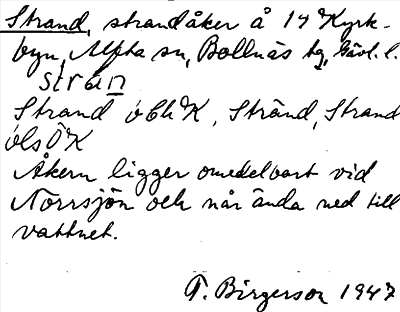 Strand, strandåker å 14 Kyrk-
byn, Alfta sn, Bollnäs tg, Gävl. l.
Strand K, Strand, Strand
K
Åkern ligger omedelbart vid
Norrsjön och når ända ned till
vattnet.
T. Birgerson 1947